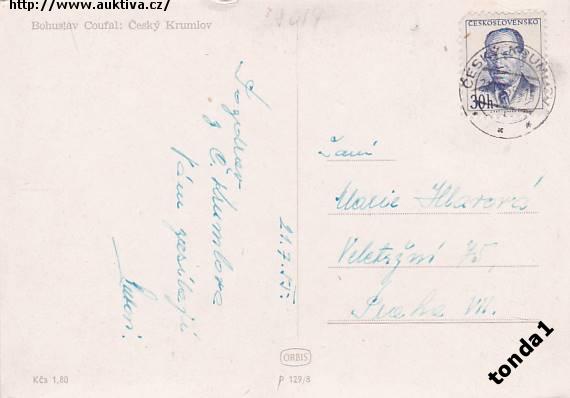 http://www.auktiva.cz/
Bohuslav Coufal: Český Krumlov
ČESKOSLOVENSKO
30h
ČESKÝ KRUMLOV
Pozdrav
z Č. Krumlova
Vám zasílají
21.7.55.
Paní
Marie
Veletržní 75
Praha VII.
ORBIS
Kčs 1,80
P 129/8
tonda1